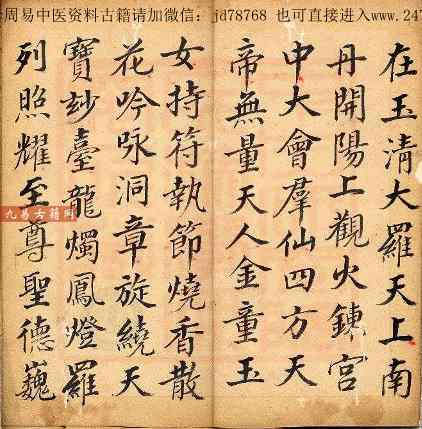 周易中医资料古籍请加微信：jd78768 也可直接进入www.247
在玉清大羅天上南
丹開陽上觀火鍊宮
中大會羣仙四方天
帝無量天人金童玉
女持符執節燒香散
花吟咏洞章旋繞天
寶玅臺龍燭鳳燈羅
列照耀至尊聖德巍
九易古籍网